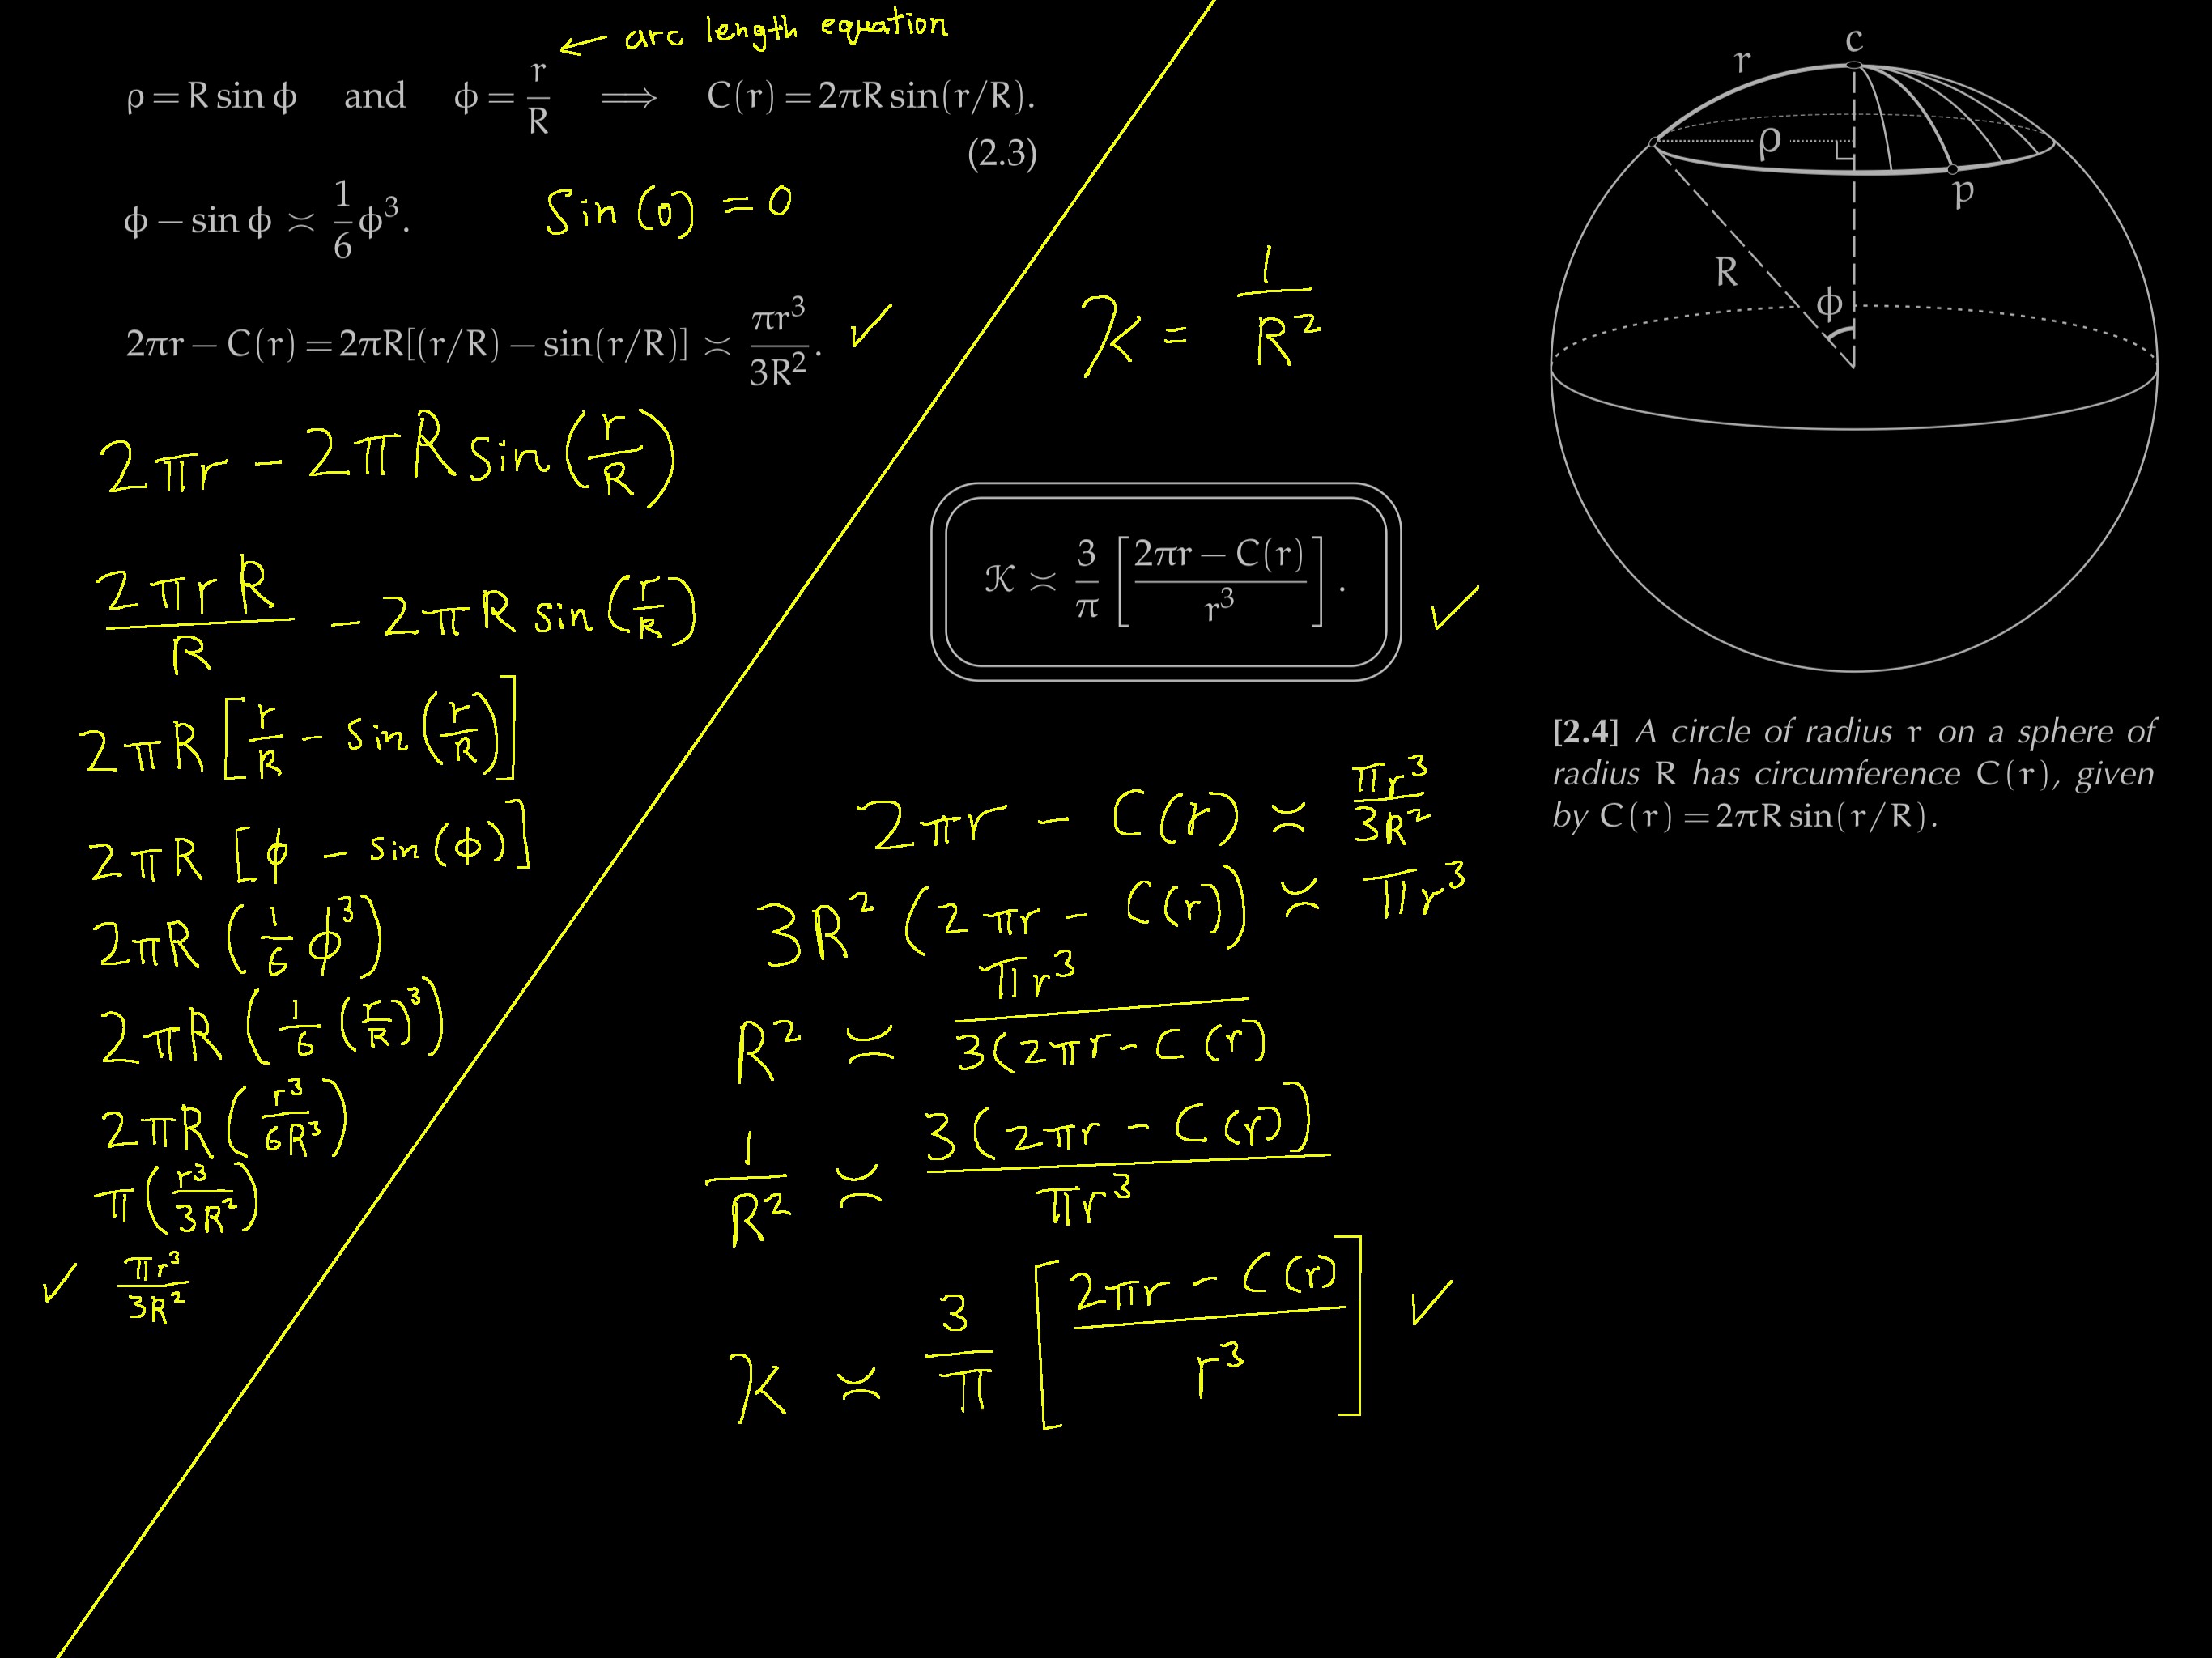 ← arc length equation
ρ = R sin ϕ and ϕ = r/R ⟹ C(r) = 2πR sin(r/R).
(2.3)
ϕ − sin ϕ ≍ 1/6 ϕ³.
Sin(0) = 0
2πr − C(r) = 2πR[(r/R) − sin(r/R)] ≍ πr³/3R². ✓
2πr − 2πR sin(r/R)
2πrR/R − 2πR sin(r/R)
2πR [r/R − sin(r/R)]
2πR [ϕ − sin(ϕ)]
2πR (1/6 ϕ³)
2πR (1/6 (r/R)³)
2πR (r³/6R³)
π(r³/3R²)
✓ πr³/3R²
𝒦 = 1/R²
𝒦 ≍ 3/π [2πr − C(r)/r³]. ✓
2πr − C(r) ≍ πr³/3R²
3R² (2πr − C(r)) ≍ πr³
R² ≍ πr³/3(2πr − C(r)
1/R² ≍ 3(2πr − C(r))/πr³
𝒦 ≍ 3/π [2πr − C(r)/r³] ✓
c
r
ρ
p
R
ϕ
[2.4] A circle of radius r on a sphere of
radius R has circumference C(r), given
by C(r) = 2πR sin(r/R).